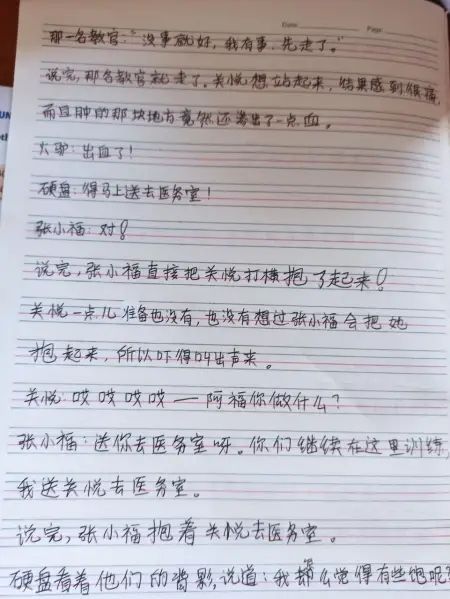 Date: Page:
那一名教官:“没事就好，我有事，先走了。”
说完，那名教官就走了。关悦想站起来，结果感到很痛，
而且肿的那块地方竟然还渗出了一点血。
火驴：出血了！
硬盘：得马上送去医务室！
张小福：对！
说完，张小福直接把关悦打横抱了起来！
关悦一点儿准备也没有，也没有想过张小福会把她
抱起来，所以吓得叫出声来。
关悦：哎哎哎哎——阿福你做什么？
张小福：送你去医务室呀。你们继续在这里训练，
我送关悦去医务室。
说完，张小福抱着关悦去医务室。
硬盘看着他们的背影，说道：我怎么觉得有些饱呢？